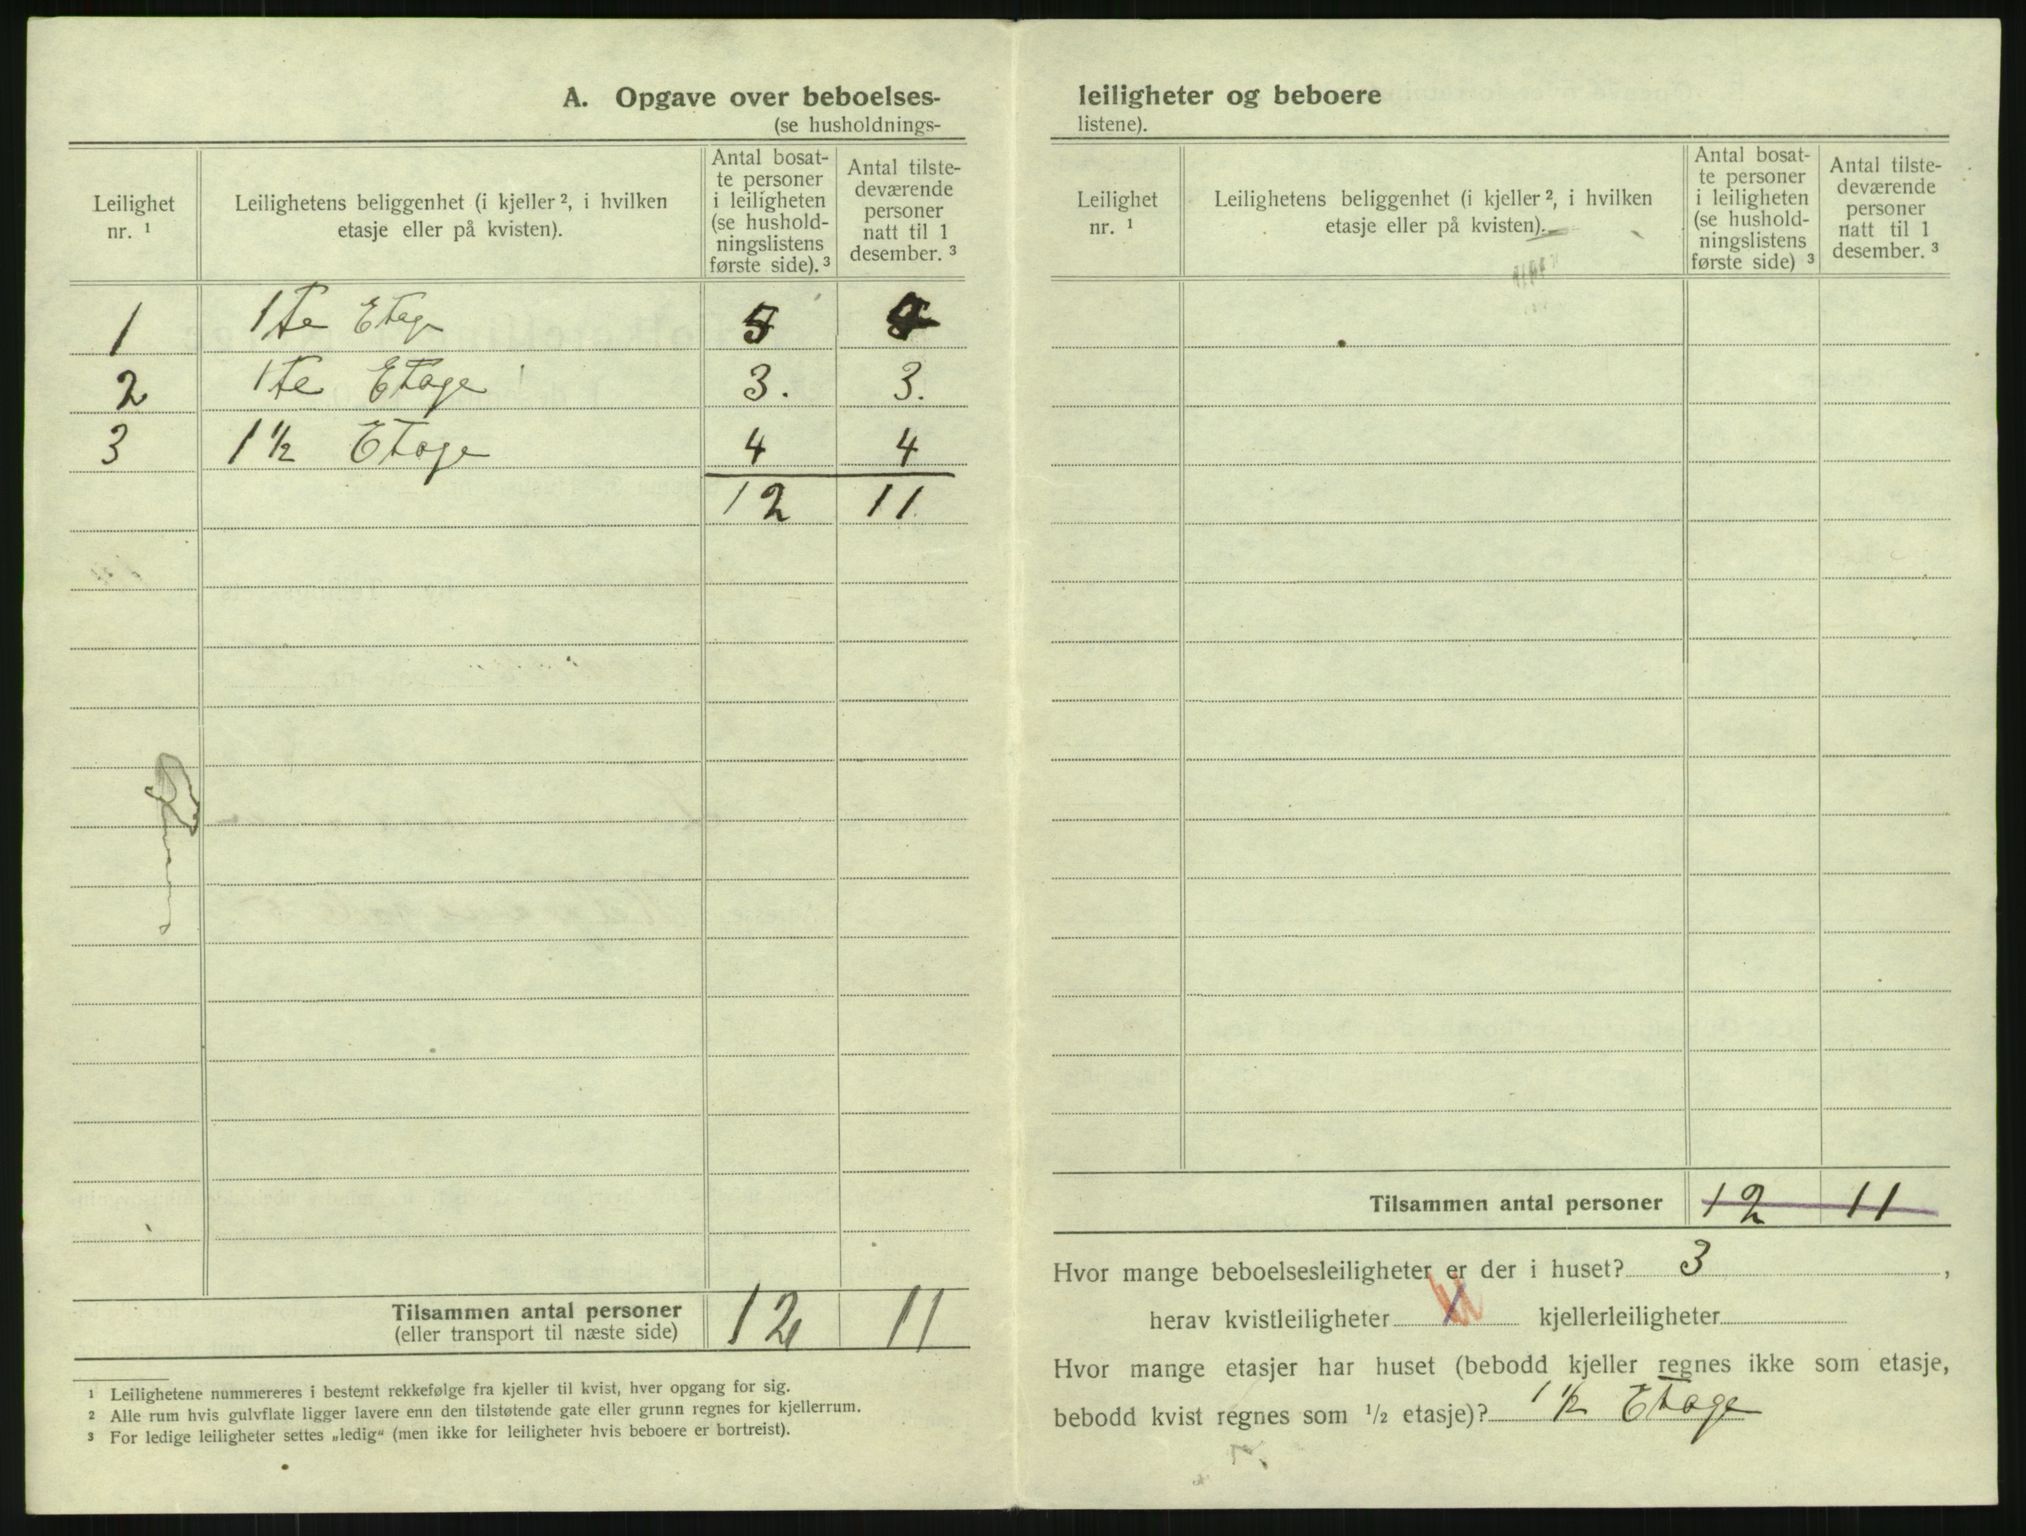 A. Opgave over beboelses-
(se husholdnings-
Leilighet
nr. ¹
Leilighetens beliggenhet (i kjeller ², i hvilken
etasje eller på kvisten).
Antal bosat-
te personer
i leiligheten
(se hushold-
ningslistens
første side). ³
Antal tilste-
deværende
personer
natt til 1
desember. ³
1 1te Etage 5
2 1te Etage 3. 3.
3 1 ½ Etage 4 4
12 11
Tilsammen antal personer
(eller transport til næste side)
12 11
¹ Leilighetene nummereres i bestemt rekkefølge fra kjeller til kvist, hver opgang for sig.
² Alle rum hvis gulvflate ligger lavere enn den tilstøtende gate eller grunn regnes for kjellerrum.
³ For ledige leiligheter settes „ledig“ (men ikke for leiligheter hvis beboere er bortreist).
leiligheter og beboere
listene).
Leilighet
nr. ¹
Leilighetens beliggenhet (i kjeller ², i hvilken
etasje eller på kvisten).
Antal bosat-
te personer
i leiligheten
(se hushold-
ningslistens
første side) ³
Antal tilste-
deværende
personer
natt til 1
desember. ³
Tilsammen antal personer 12 11
Hvor mange beboelsesleiligheter er der i huset? 3,
herav kvistleiligheter 1 kjellerleiligheter
Hvor mange etasjer har huset (bebodd kjeller regnes ikke som etasje,
bebodd kvist regnes som ½ etasje)? 1 ½ Etage